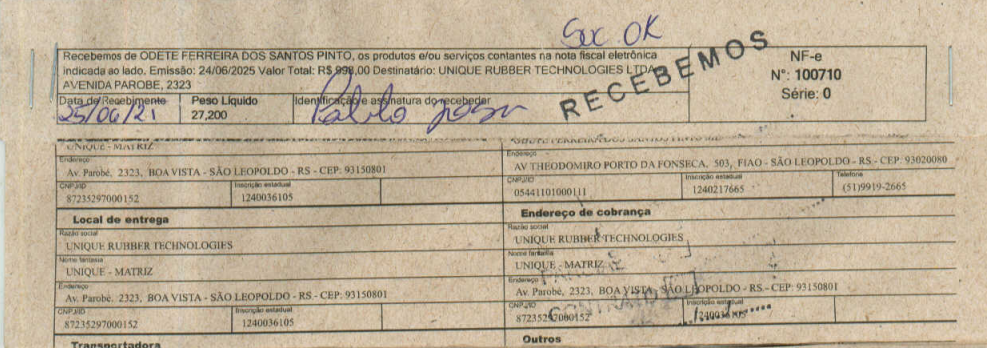 Suc OK
Recebemos de ODETE FERREIRA DOS SANTOS PINTO, os produtos e/ou serviços contantes na nota fiscal eletrônica
indicada ao lado. Emissão: 24/06/2025 Valor Total: R$ 998,00 Destinatário: UNIQUE RUBBER TECHNOLOGIES LTDA
AVENIDA PAROBE, 2323
RECEBEMOS
NF-e
N°: 100710
Série: 0
Data de Recebimento
25/06/21
Peso Líquido
27,200
Identificação e assinatura do recebedor
Pablo
UNIQUE - MATRIZ
Endereço
Av. Parobé, 2323, BOA VISTA - SÃO LEOPOLDO - RS - CEP: 93150801
CNPJ/ID
87235297000152
Inscrição estadual
1240036105
Endereço
AV THEODOMIRO PORTO DA FONSECA, 503, FIAO - SÃO LEOPOLDO - RS - CEP: 93020080
CNPJ/ID
05441101000111
Inscrição estadual
1240217665
Telefone
(51)9919-2665
Local de entrega
Razão social
UNIQUE RUBBER TECHNOLOGIES
Nome fantasia
UNIQUE - MATRIZ
Endereço
Av. Parobé, 2323, BOA VISTA - SÃO LEOPOLDO - RS - CEP: 93150801
CNPJ/ID
87235297000152
Inscrição estadual
1240036105
Transportadora
Endereço de cobrança
Razão social
UNIQUE RUBBER TECHNOLOGIES
Nome fantasia
UNIQUE - MATRIZ
Endereço
Av. Parobé, 2323, BOA VISTA - SÃO LEOPOLDO - RS - CEP: 93150801
CNPJ/ID
87235297000152
Inscrição estadual
1240036105
Outros